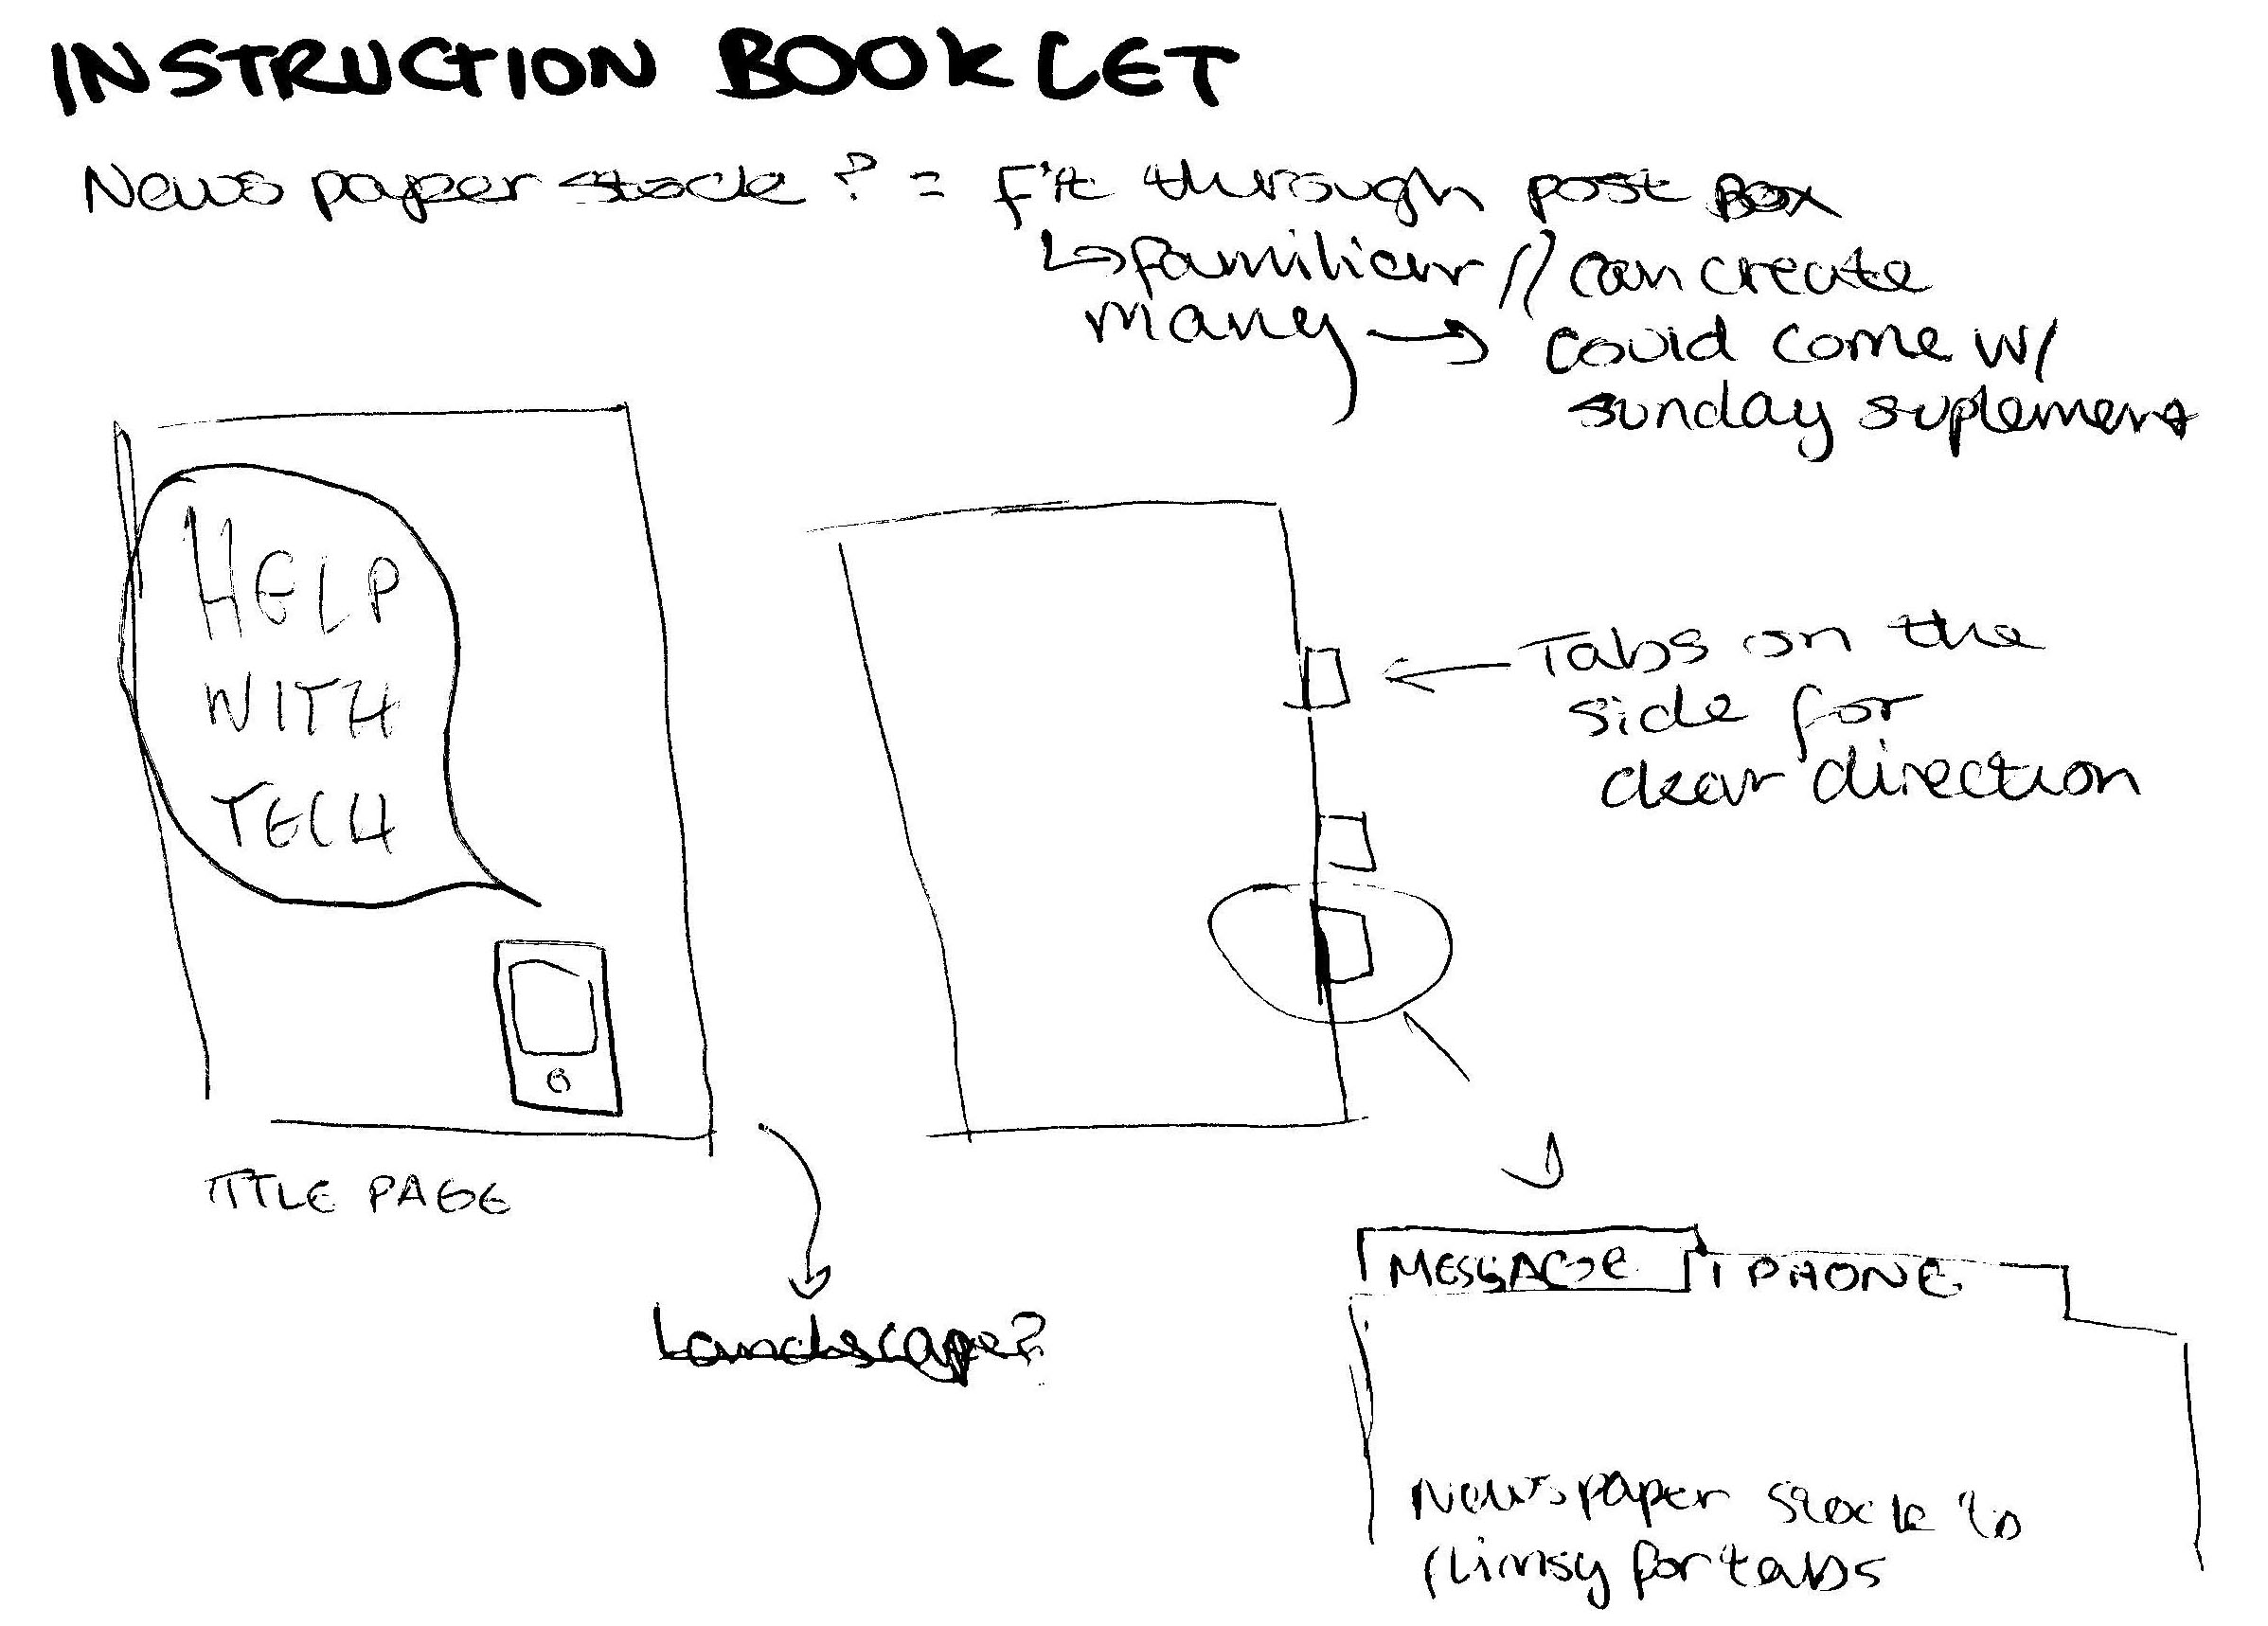 INSTRUCTION BOOKLET
Newspaper stock? = fit through post Box
↳ familiar // can create
many → could come w/
sunday suplement
HELP
WITH
TECH
Tabs on the
side for
clear direction
TITLE PAGE
Landscape?
MESSAGE PHONE
Newspaper stock
flimsy for tabs